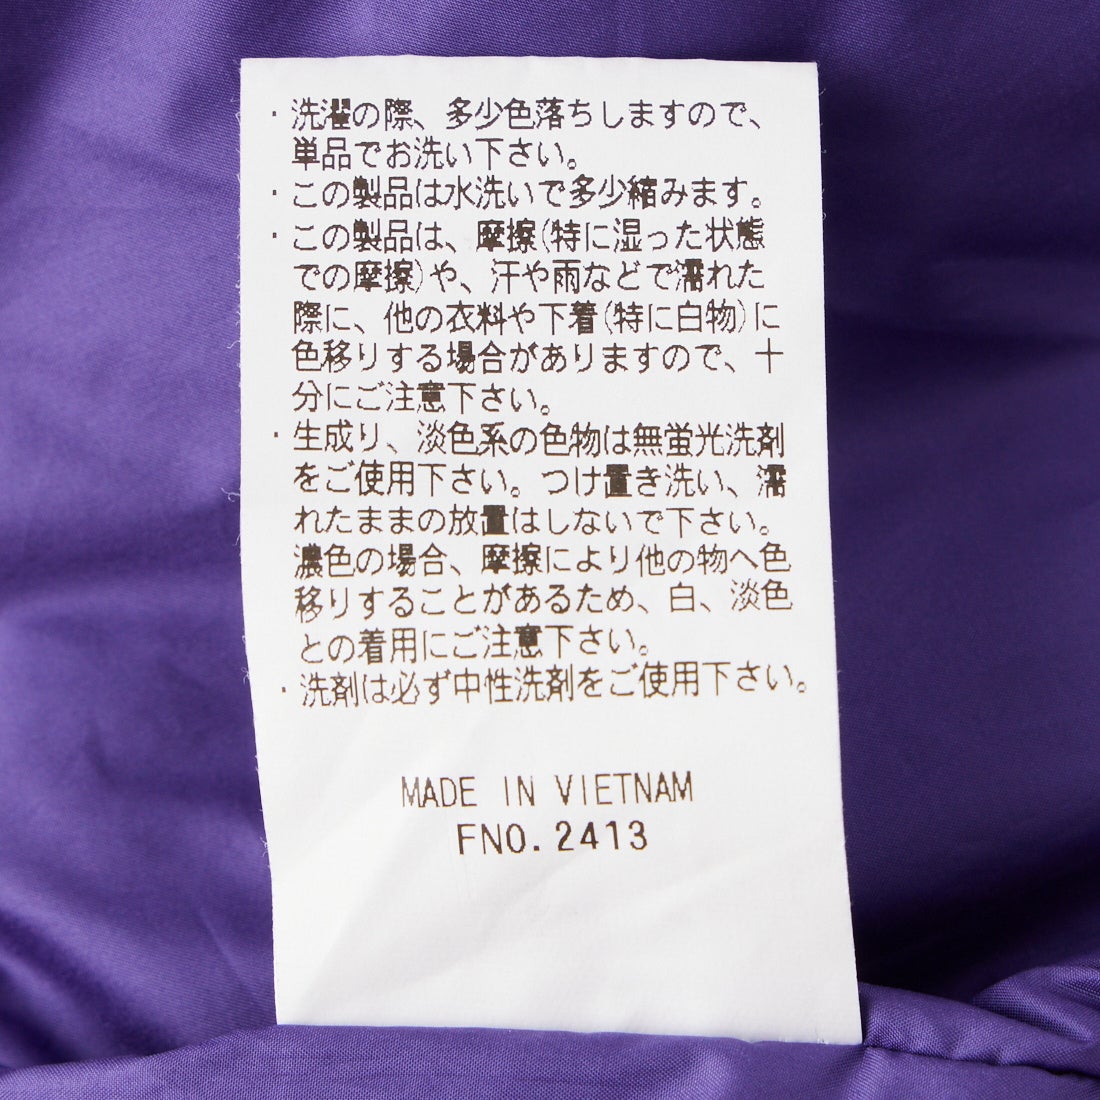 ・洗濯の際、多少色落ちしますので、
単品でお洗い下さい。
・この製品は水洗いで多少縮みます。
・この製品は、摩擦(特に湿った状態
での摩擦)や、汗や雨などで濡れた
際に、他の衣料や下着(特に白物)に
色移りする場合がありますので、十
分にご注意下さい。
・生成り、淡色系の色物は無蛍光洗剤
をご使用下さい。つけ置き洗い、濡
れたままの放置はしないで下さい。
濃色の場合、摩擦により他の物へ色
移りすることがあるため、白、淡色
との着用にご注意下さい。
・洗剤は必ず中性洗剤をご使用下さい。
MADE IN VIETNAM
FNO.2413